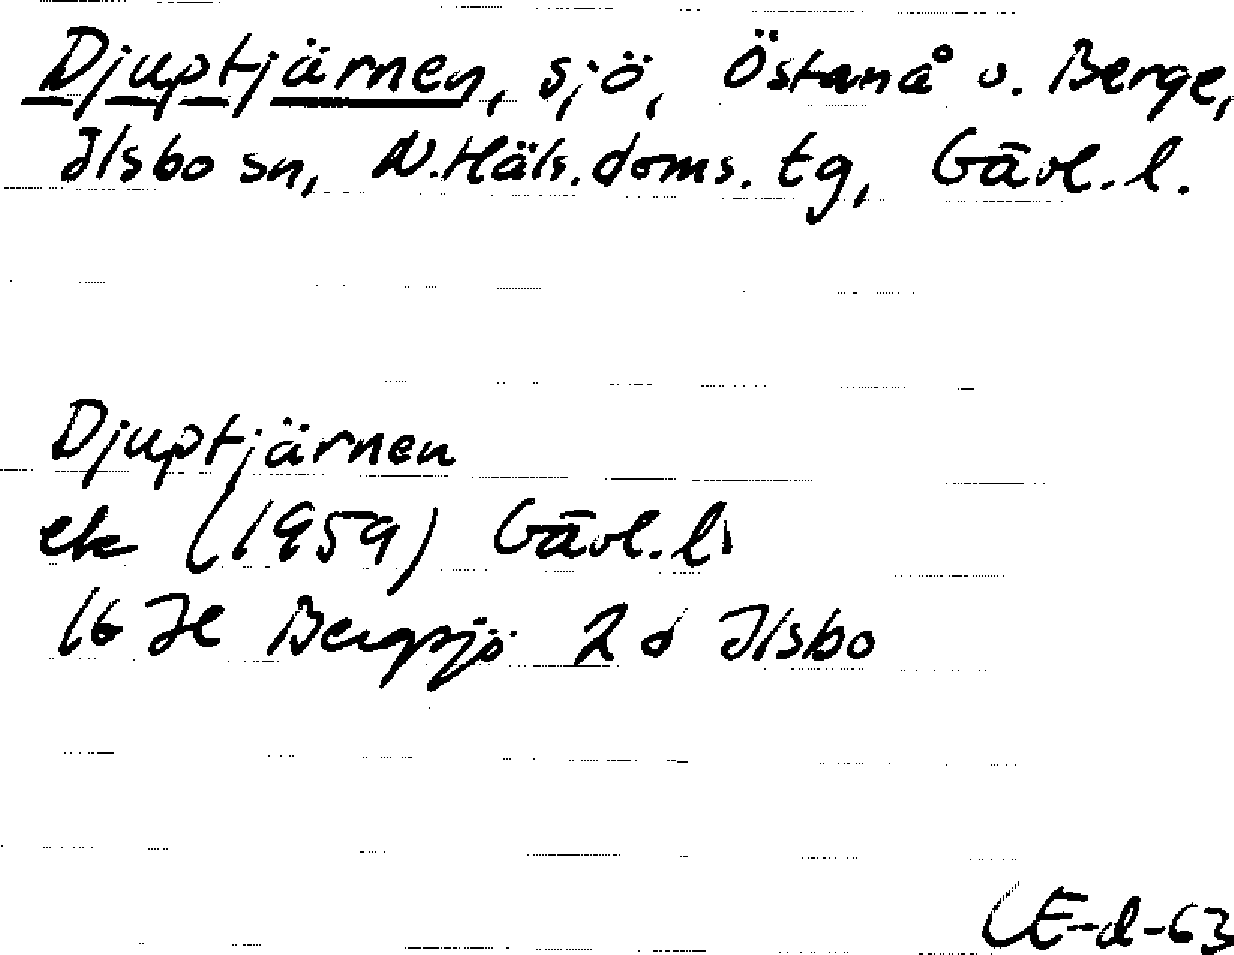 Djuptjärnen, sjö, Östanå o. Berge,
Ilsbo sn, N. Häls. doms. tg, Gävl. l.
Djuptjärnen
ek (1959) Gävl. l.
16 H Bergsjö 2 d Ilsbo
E-d-63